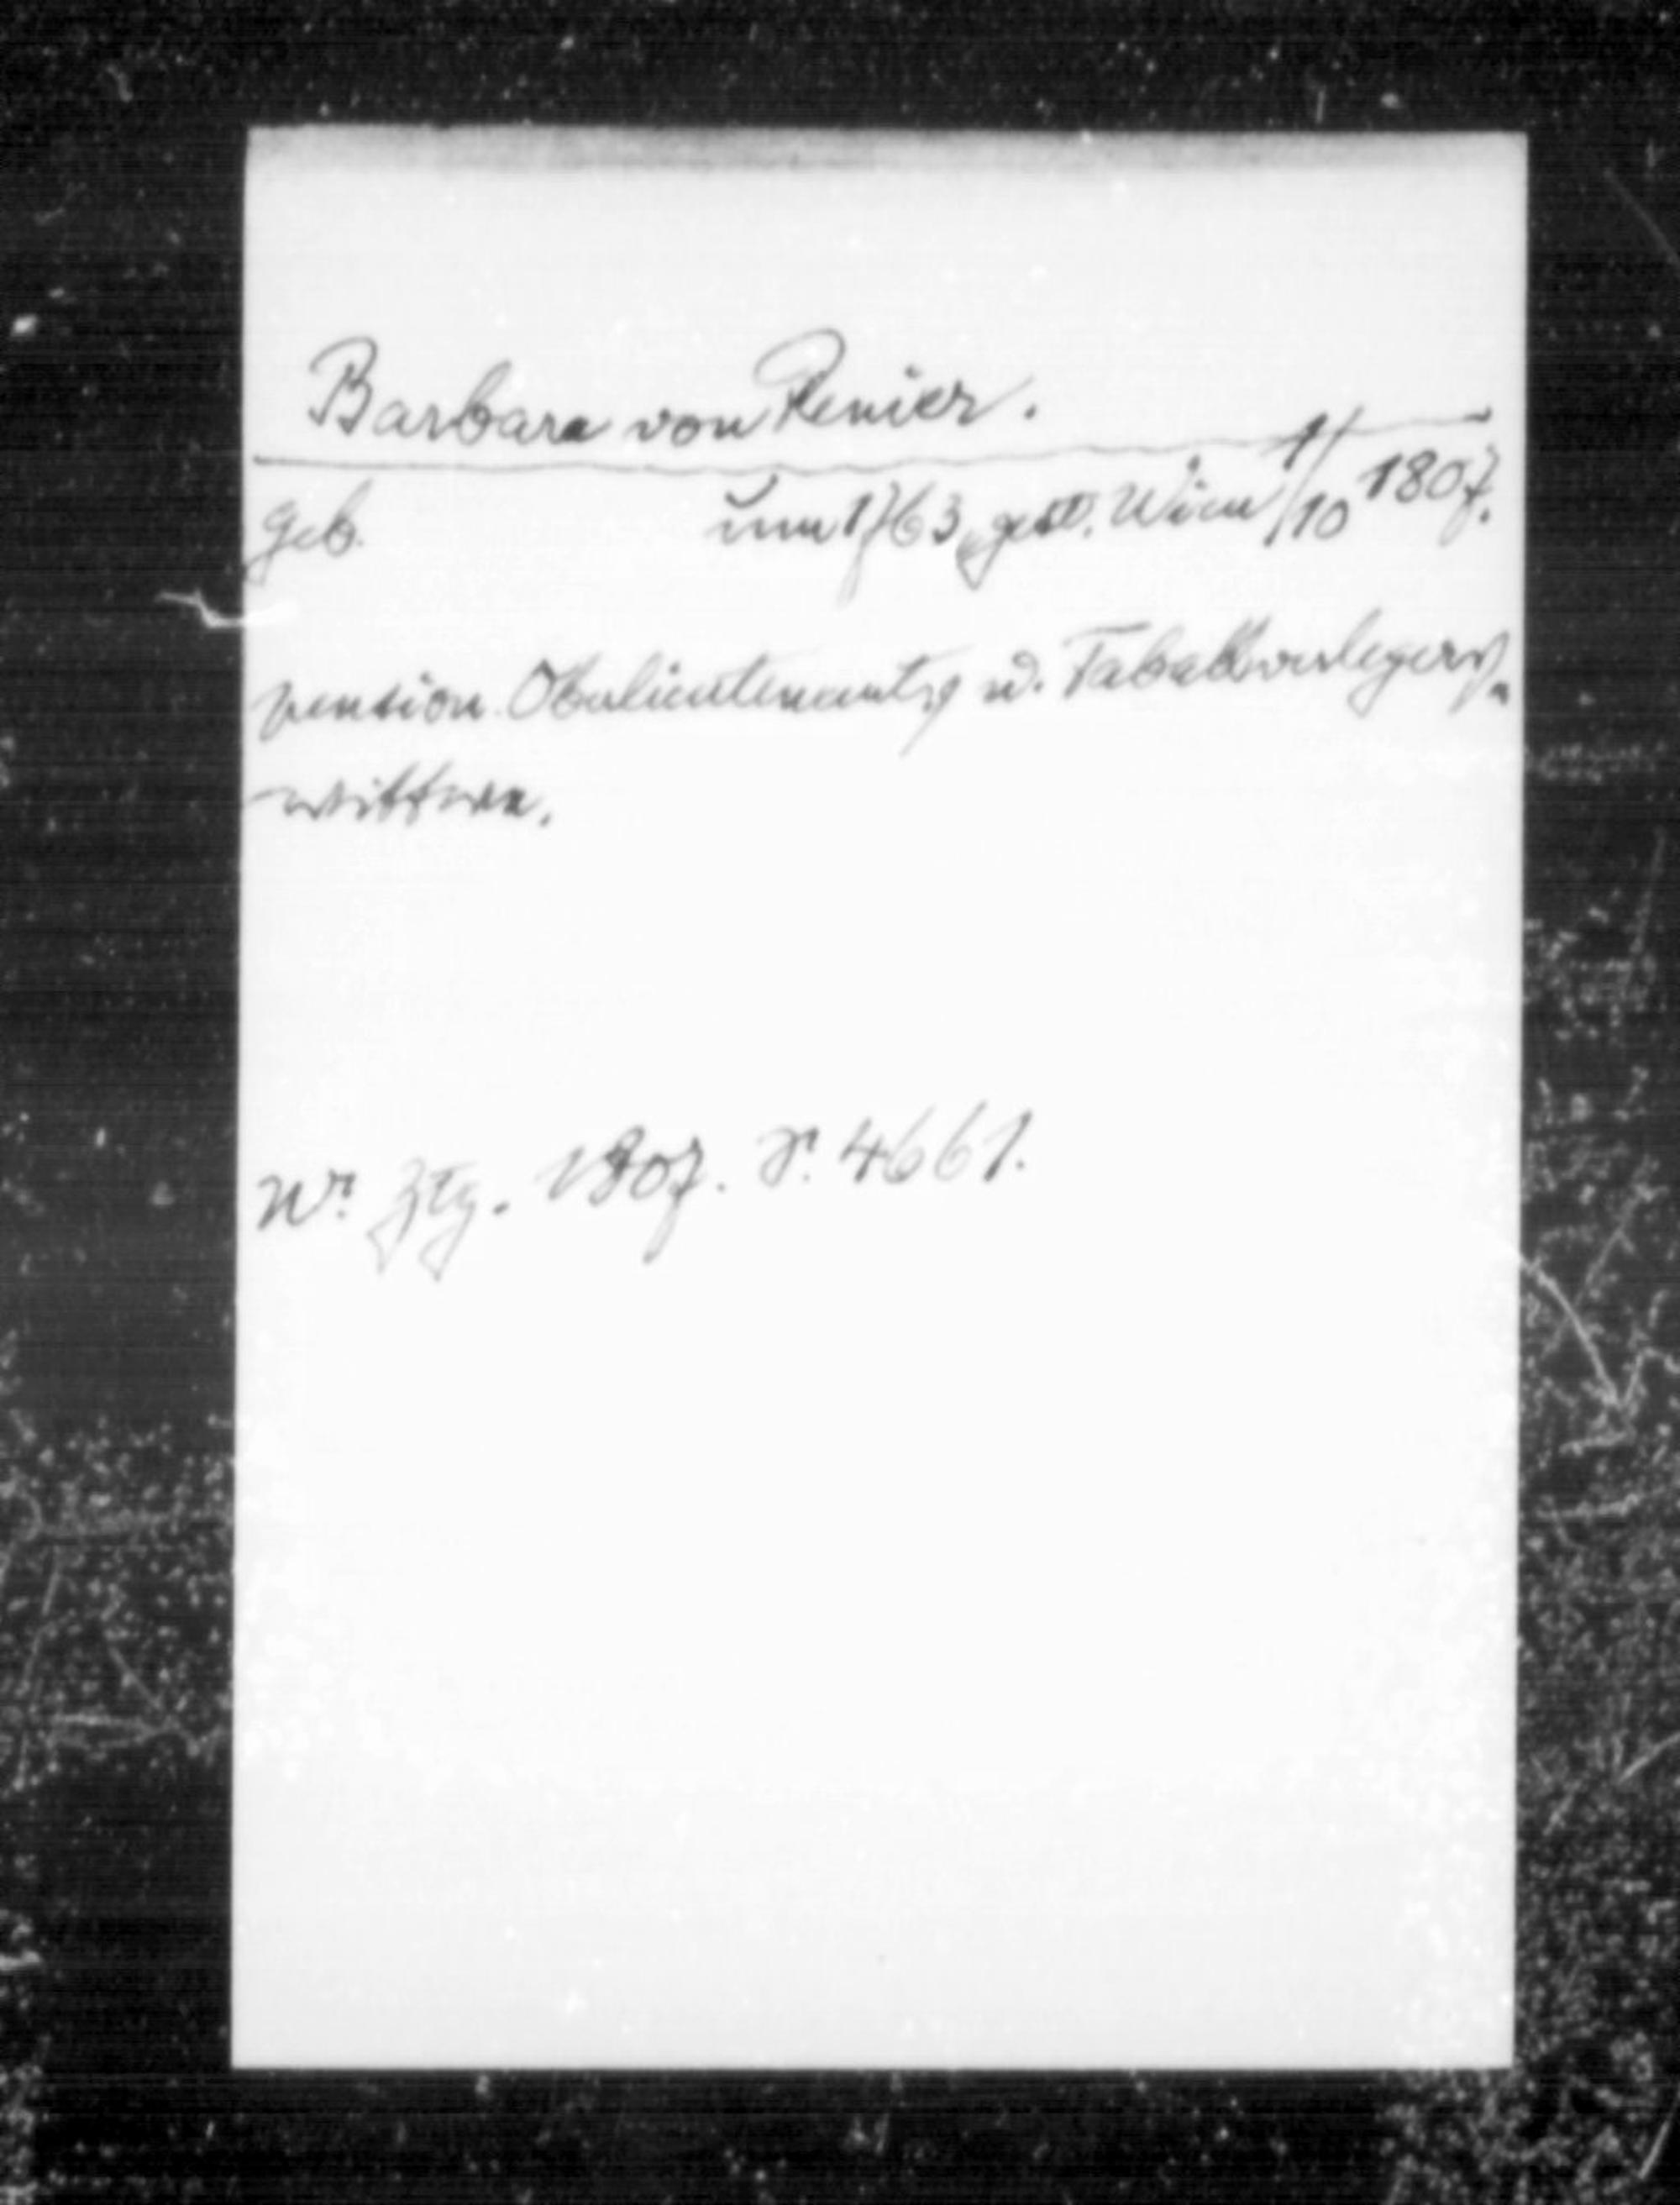 Barbara von Renier.
geb. um 1763, gest. Wien 1/10 1807.
pension. Oberlieutenants u. Tabakverlegers-
wittwe.
Wr Ztg. 1807. S. 4661.